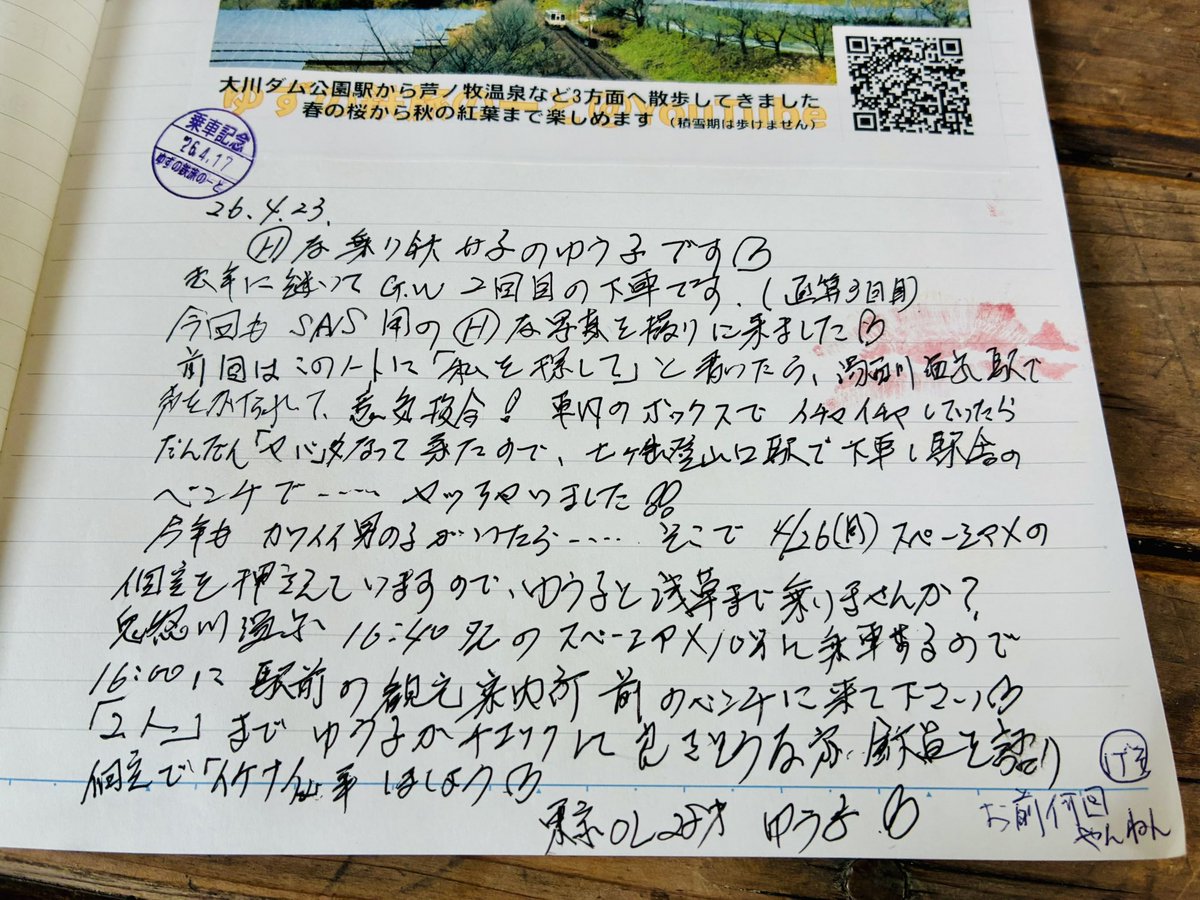 大川ダム公園駅から芦ノ牧温泉など3方面へ散歩してきました
春の桜から秋の紅葉まで楽しめます（積雪期は歩けません）
乗車記念
26.4.17
ゆずの鉄旅のーと
26.4.23.
Ⓗな乗り鉄女子のゆう子です
去年に継いてG.W 2回目の下車です.(通算3回目)
今回もSNS用のⒽな写真を撮りに来ました
前回はこのノートに「私を探して」と書いたら、湯西川温泉駅で
声をかけられて、意気投合! 車内のボックスでイチャイチャしていたら
だんだん「ヤバ」くなって来たので、七ヶ岳登山口駅で下車し駅舎の
ベンチで‥‥‥ ヤッちゃいました
今年もカワイイ男の子がいたら‥‥‥ そこで 4/26(月)スペーシアXの
個室を押えていますので、ゆう子と浅草まで乗りませんか?
鬼怒川温泉 16:40発のスペーシアX10号に乗車するので
16:00に駅前の観光案内所前のベンチに来て下さい
「2人」までゆう子がチェックし
個室で「イケナイ事」しましょう
東京OL 28才 ゆう子
お前何回
やんねん